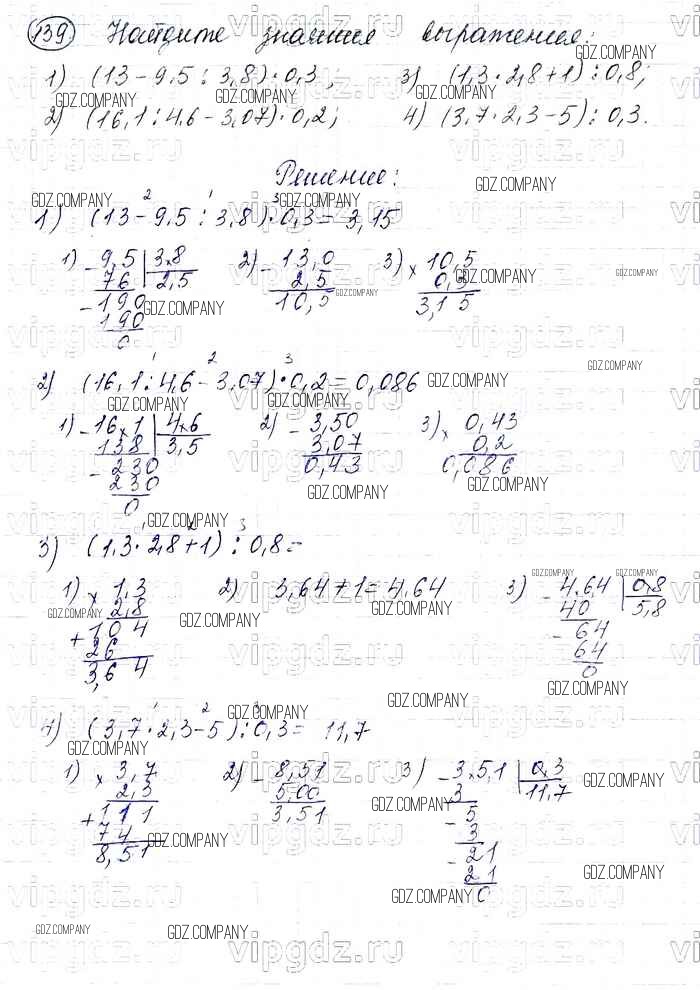 139 Найдите значения выражения:
1) (13 - 9,5 : 3,8) · 0,3; 3) (1,3 · 2,8 + 1) : 0,8;
2) (16,1 : 4,6 - 3,07) · 0,2; 4) (3,7 · 2,3 - 5) : 0,3.
Решение:
1) (13 - 9,5 : 3,8) · 0,3 = 3,15
1) 9,5 | 3,8 2) 13,0 3) 10,5
76 | 2,5 2,5 0,3
190 10,5 3,15
190
0
2) (16,1 : 4,6 - 3,07) · 0,2 = 0,086
1) 16,1 | 4,6 2) 3,50 3) 0,43
138 | 3,5 3,07 0,2
230 0,43 0,086
230
0
3) (1,3 · 2,8 + 1) : 0,8 =
1) × 1,3 2) 3,64 + 1 = 4,64 3) 4,64 | 0,8
2,8 40 | 5,8
+ 104 64
26 64
3,64 0
4) (3,7 · 2,3 - 5) : 0,3 = 11,7
1) × 3,7 2) 8,51 3) 3,51 | 0,3
2,3 5,00 3 | 11,7
+ 111 3,51 5
74 3
8,51 21
21
0
GDZ.COMPANY
vipgdz.ru